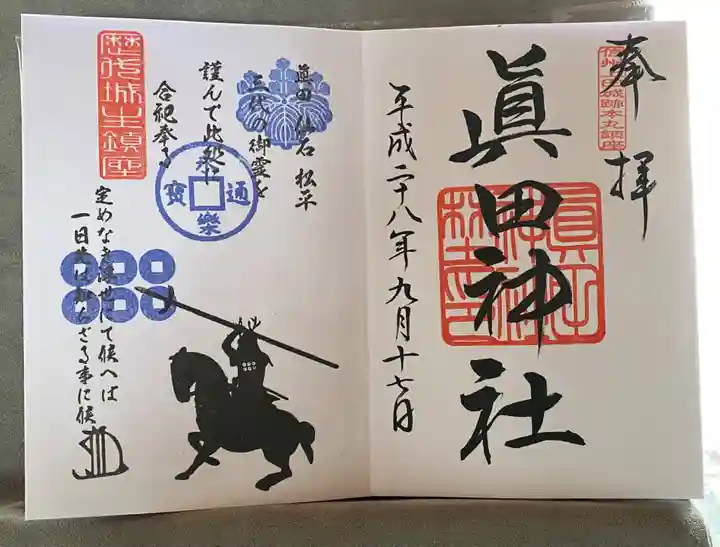 奉拝
信州上田城跡本丸鎮座
眞田神社
平成二十八年九月十七日
眞田 仙石 松平
三代の御霊を
謹んで此処に
合祀奉る
永樂通寳
定めなき浮世にて候へば
一日先は知らざる事に候